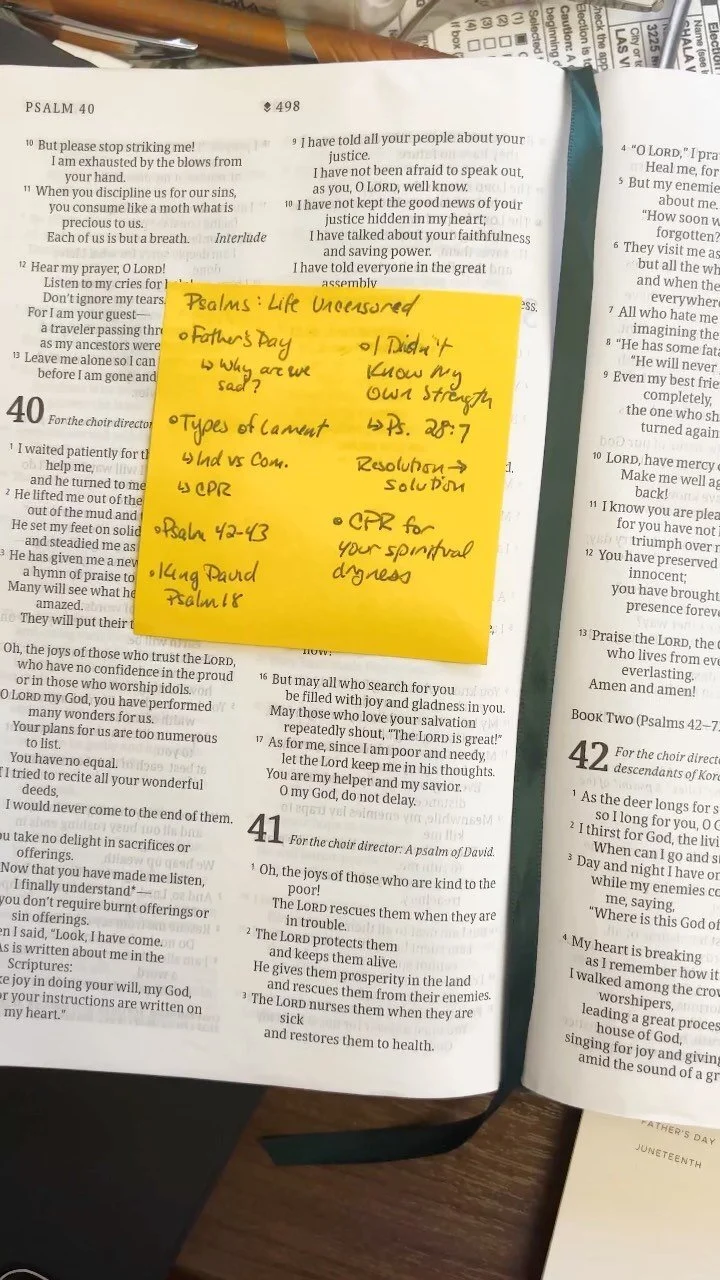 PSALM 40
498
10 But please stop striking me!
I am exhausted by the blows from
your hand.
11 When you discipline us for our sins,
you consume like a moth what is
precious to us.
Each of us is but a breath. Interlude
12 Hear my prayer, O LORD!
Listen to my cries for
Don't ignore my tears.
For I am your guest—
a traveler passing
as my ancestors were
13 Leave me alone so I can
before I am gone and
40 For the choir director
1 I waited patiently for
help me,
and he turned to me
2 He lifted me out of the
out of the mud and
He set my feet on solid
and steadied me as
3 He has given me a new
a hymn of praise to
Many will see what he
amazed.
They will put their
Oh, the joys of those who trust the LORD,
who have no confidence in the proud
or in those who worship idols.
O LORD my God, you have performed
many wonders for us.
Your plans for us are too numerous
to list.
You have no equal.
If I tried to recite all your wonderful
deeds,
I would never come to the end of them.
take no delight in sacrifices or
offerings.
Now that you have made me listen,
I finally understand*—
you don't require burnt offerings or
sin offerings.
I said, "Look, I have come.
As is written about me in the
Scriptures:
joy in doing your will, my God,
for your instructions are written on
my heart."
9 I have told all your people about your
justice.
I have not been afraid to speak out,
as you, O LORD, well know.
10 I have not kept the good news of your
justice hidden in my heart;
I have talked about your faithfulness
and saving power.
I have told everyone in the great
assembly
Psalms: Life Uncensored
Father's Day
↳ Why are we
sad?
Types of Lament
↳ Ind vs Com.
↳ CPR
Psalm 42-43
King David
Psalm 18
I Didn't
Know My
Own Strength
↳ Ps. 28:7
Resolution →
solution
CPR for
your spiritual
dryness
now!
16 But may all who search for you
be filled with joy and gladness in you.
May those who love your salvation
repeatedly shout, "The LORD is great!"
17 As for me, since I am poor and needy,
let the Lord keep me in his thoughts.
You are my helper and my savior.
O my God, do not delay.
41 For the choir director: A psalm of David.
1 Oh, the joys of those who are kind to the
poor!
The LORD rescues them when they are
in trouble.
2 The LORD protects them
and keeps them alive.
He gives them prosperity in the land
and rescues them from their enemies.
3 The LORD nurses them when they are
sick
and restores them to health.
4 "O LORD," I
Heal me, for
5 But my
about me.
"How soon
forgotten?
6 They visit me as
but all the
and when the
everywhere
7 All who hate me
imagining the
8 "He has some
"He will never
9 Even my best
completely,
the one who
turned again
10 LORD, have mercy
Make me well
back!
11 I know you are
for you have not
triumph over
12 You have preserved
innocent;
you have brought
presence
13 Praise the LORD, the
who lives from
everlasting.
Amen and amen!
BOOK TWO (Psalms 42–
42 For the choir
descendants of
1 As the deer longs for
so I long for you, O
2 I thirst for God, the
When can I go and
3 Day and night I have
while my enemies
me, saying,
"Where is this God
4 My heart is breaking
as I remember how it
I walked among the
worshipers,
leading a great
house of God,
singing for joy and
amid the sound of a
FATHER'S DAY
JUNETEENTH